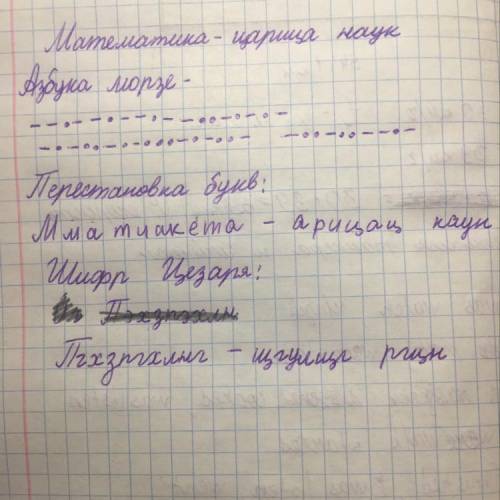 Математика - царица наук
Азбука морзе -
Перестановка букв:
Мматиакета - арицац каун
Шифр Цезаря:
Пгхзпгхлнг - щгулщг ргцн